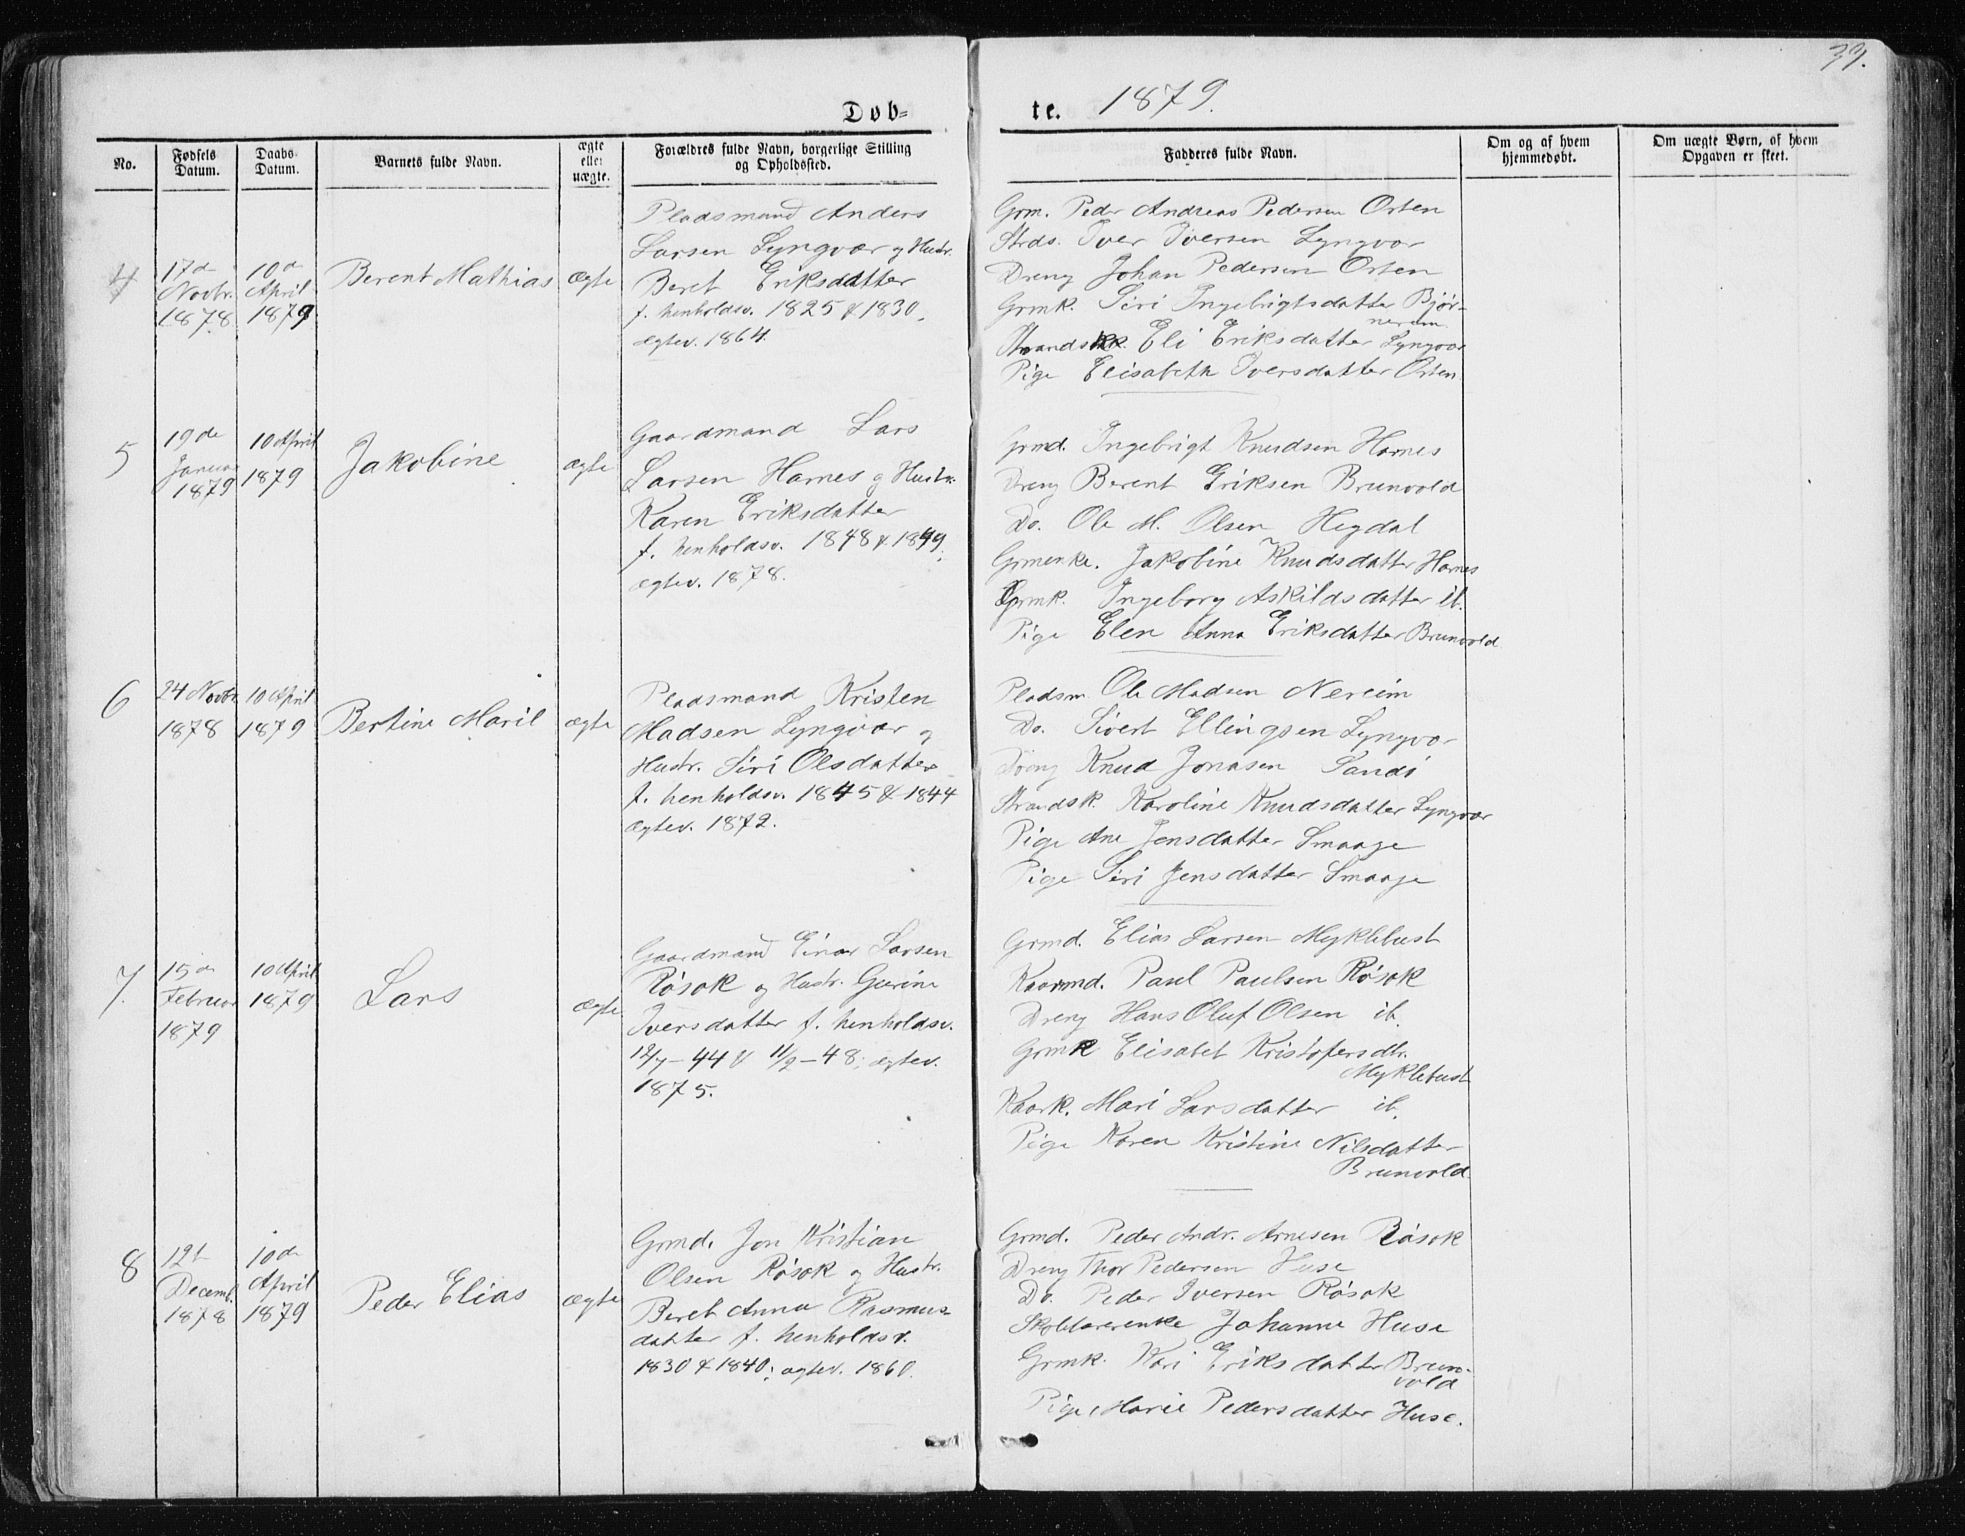 33.
Døb=
te. 1879.
No.
Fødsels Datum.
Daabs-Datum.
Barnets fulde Navn.
ægte eller uægte.
Forældres fulde Navn, borgerlige Stilling og Opholdssted.
Fadderes fulde Navn.
Om og af hvem hjemmedøbt.
Om uægte Børn, af hvem Opgaven er skeet.
4
17de Novbr. 1878
10de April 1879
Berent Mathias
ægte
Pladsmand Anders
Larsen Lyngvær og Hustr.
Beret Eriksdatter
f. henholdsv. 1825 & 1830,
ægtev. 1864.
Grm. Peder Andreas Pedersen Orten
Strds. Iver Iversen Lyngvær
Dreng Johan Pedersen Orten
Grmk. Siri Ingebrigtsdatter Bjør-
nerem
Strandsk. Eli Eriksdatter Lyngvær
Pige Elisabeth Iversdatter Orten
5
19de Januar 1879
10 April 1879
Jakobine
ægte
Gaardmand Lars
Larsen Harnes og Hustr.
Karen Eriksdatter
f. henholdsv. 1848 & 1849,
ægtev. 1878.
Grmd. Ingebrigt Knudsen Harnes
Dreng Berent Eriksen Brunvold
Do. Ole M. Olsen Hegdal
Grmenke. Jakobine Knudsdatter Harnes
Grmk. Ingeborg Askildsdatter ib.
Pige Elen Anna Eriksdatter Brunvold
6
24 Novbr. 1878
10 April 1879
Bertine Marit
ægte
Pladsmand Kristen
Madsen Lyngvær og
Hustr. Siri Olsdatter
f. henholdsv. 1845 & 1844
ægtev. 1872.
Pladsm. Ole Madsen Nereim
Do. Sivert Ellingsen Lyngvær
Dreng Knud Jonasen Sandø
Strandsk. Karoline Knudsdatter Lyngvær
Pige Ane Jensdatter Smaage
Pige Siri Jensdatter Smaage
7.
15de Februar 1879
10 April 1879
Lars
ægte
Gaardmand Einar Larsen
Røsok og Hustr. Gurine
Iversdatter f. henholdsv.
12/7-44 & 11/9-48; ægtev.
1875.
Grmd. Elias Larsen Myklebust
Kaarmd. Paul Paulsen Røsok
Dreng Hans Oluf Olsen ib.
Grmk Elisabet Kristofersdtr.
Myklebust
Kaark. Mari Larsdatter ib.
Pige Karen Kristine Nilsdatter
Brunvold
8
12t Decemb. 1878
10de April 1879
Peder Elias
ægte
Grmd. Jon Kristian
Olsen Røsok og Hustr.
Beret Anna Rasmus-
datter f. henholdsv.
1830 & 1840; ægtev. 1860.
Grmd. Peder Andr. Arnesen Røsok
Dreng Thor Pedersen Huse
Do. Peder Iversen Røsok
Skolelærerenke Johanne Huse
Grmk. Kari Eriksdatter Brun-
vold
Pige Marie Pedersdatter Huse.